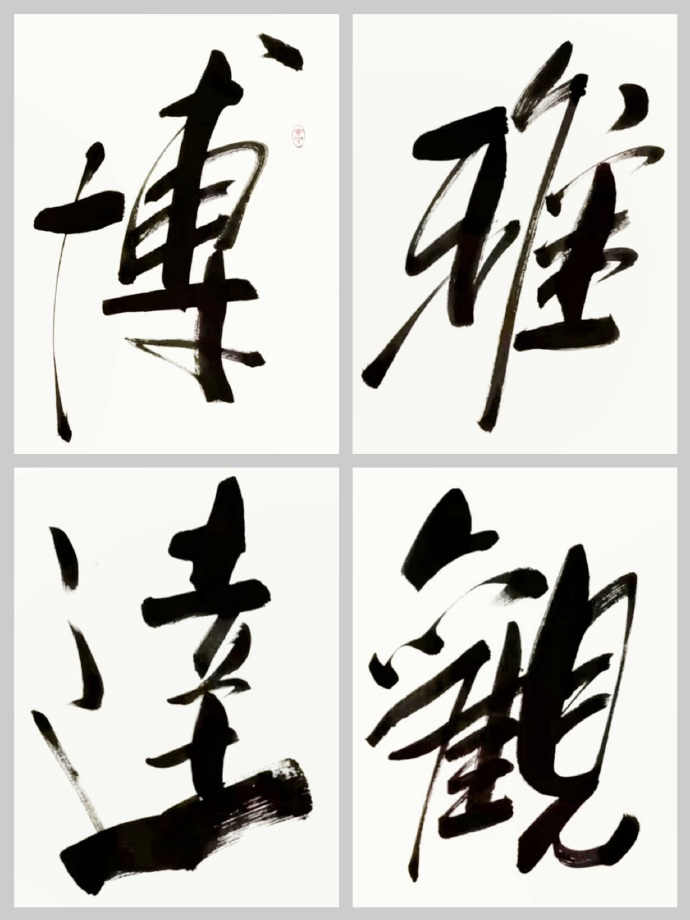 博雅
達觀